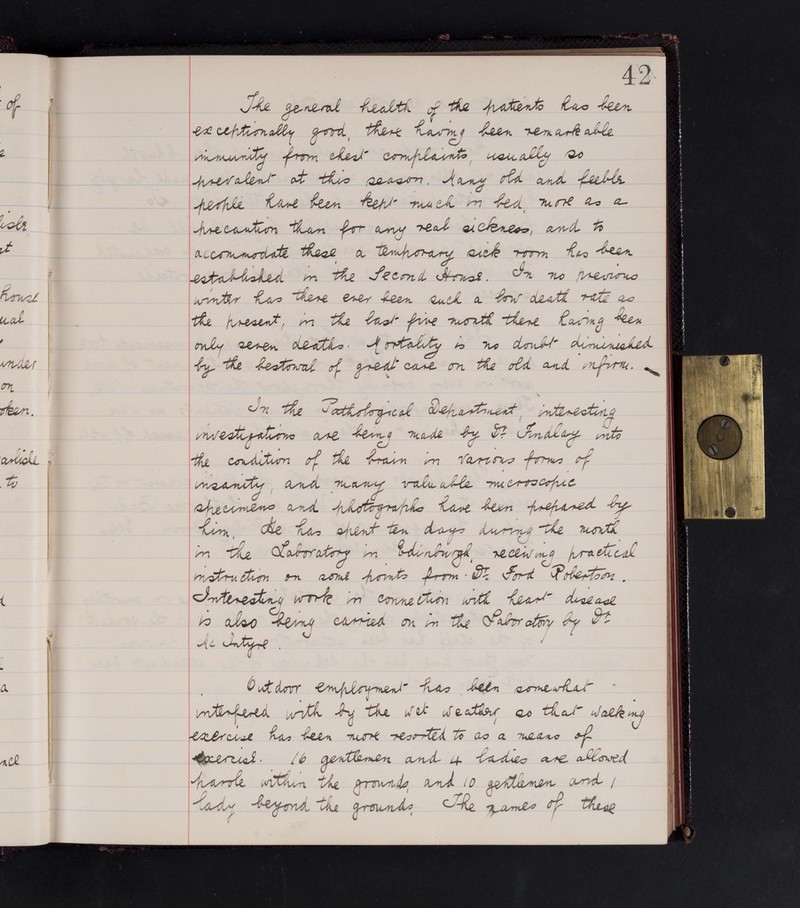 42
The general health of the patients has been
exceptionally good, there having been remarkable
immunity from chest complaints, usually so
prevalent at this season. Many old and feeble
people have been kept much in bed, more as a
precaution than for any real sickness, and to
accommodate these a temporary sick room has been
established in the Second House. In no previous
winter has there ever been such a low death rate as
the present, in the last five month there having been
only seven deaths. Mortality is no doubt diminished
by the bestowal of great care on the old and infirm.
In the Pathological Department, interesting
investigations are being made by Dr. Findlay into
the condition of the brain in various forms of
insanity, and many valuable microscopic
specimens and photographs have been prepared by
him. He has spent ten days during the month
in the Laboratory in Edinburgh, receiving practical
instruction on some points from Dr. Ford Robertson.
Interesting work in connection with heart disease
is also being carried on in the Laboratory by Dr.
Mc Intyre.
Outdoor employment has been somewhat
interfered with by the wet weather, so that walking
exercise has been more resorted to as a means of
exercise. 16 gentlemen and 4 ladies are allowed
parole within the grounds, and 10 gentlemen and 1
lady beyond the grounds. The names of these
of
house
ual
under
on
oken.
arlisle
to
a
nce